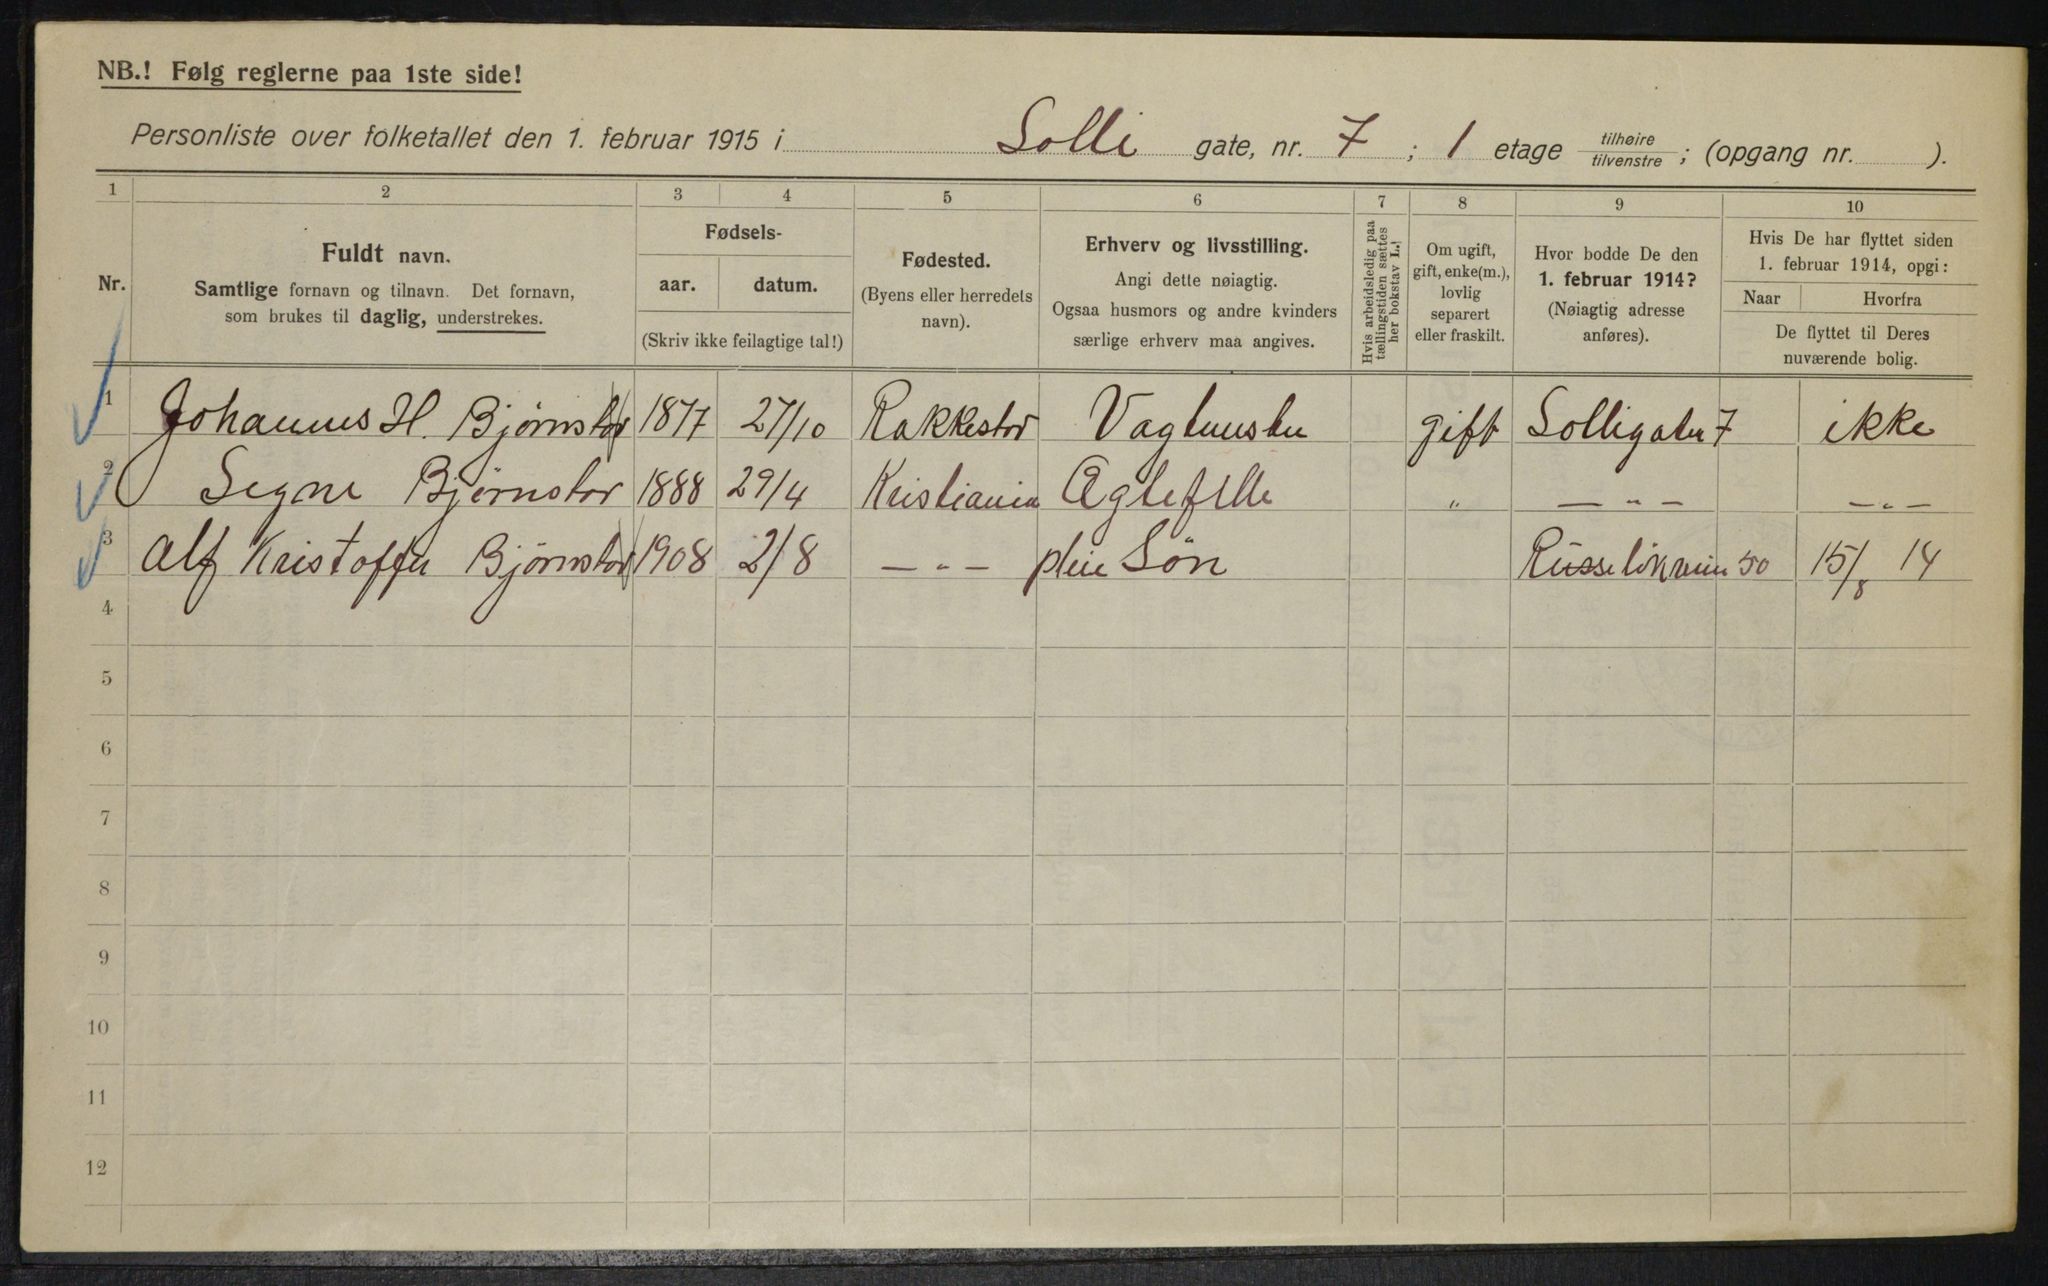 NB.! Følg reglerne paa 1ste side!
Personliste over folketallet den 1. februar 1915 i Solli gate, nr. 7 ; 1 etage tilhøire / tilvenstre ; (opgang nr. ).
1 2 3 4 5 6 7 8 9 10
Nr.
Fuldt navn.
Samtlige fornavn og tilnavn. Det fornavn,
som brukes til daglig, understrekes.
Fødsels-
aar. datum.
(Skriv ikke feilagtige tal!)
Fødested.
(Byens eller herredets
navn).
Erhverv og livsstilling.
Angi dette nøiagtig.
Ogsaa husmors og andre kvinders
særlige erhverv maa angives.
Hvis arbeidsledig paa
tællingstiden sættes
her bokstav L.!
Om ugift,
gift, enke(m.),
lovlig
separert
eller fraskilt.
Hvor bodde De den
1. februar 1914?
(Nøiagtig adresse
anføres).
Hvis De har flyttet siden
1. februar 1914, opgi:
Naar Hvorfra
De flyttet til Deres
nuværende bolig.
1 Johannes H. Bjørnstad 1877 27/10 Rakkestad gift Solligaten 7 ikke
2 Signe Bjørnstad 1888 29/4 Kristiania Ægtefelle „ — „ — — „ —
3 Alf Kristoffer Bjørnstad 1908 2/8 — „ — pleie Søn 50 15/8 14
4
5
6
7
8
9
10
11
12